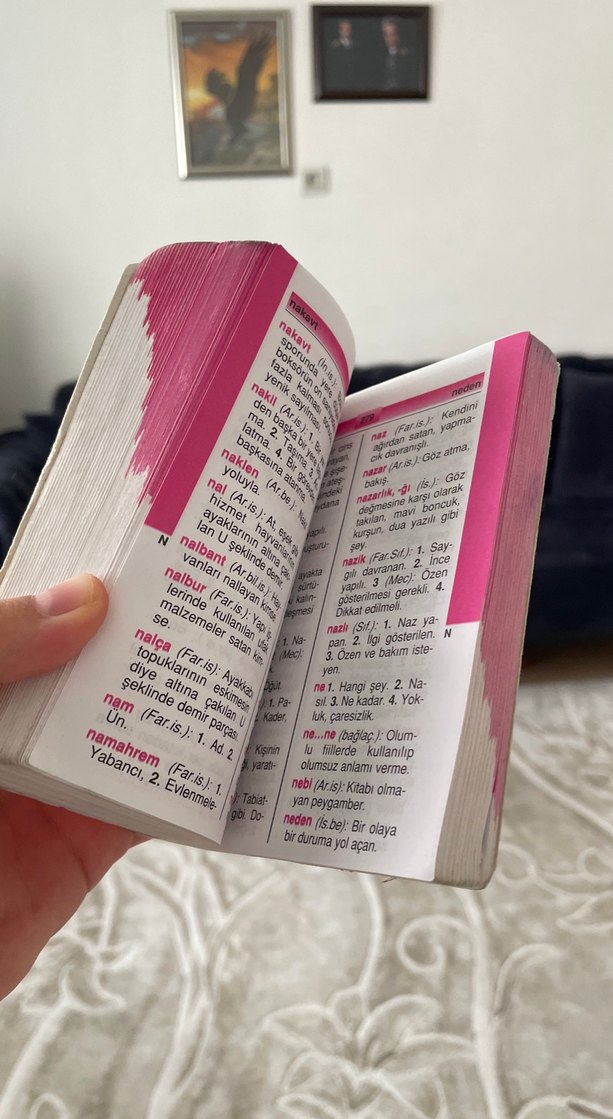 nakavt
nakavt (İn.is.):
sporunda yere
boksörün on
fazla kalması
yenik sayılması.
nakil (Ar.is.): 1. Bir
den başka bir yere
ma. 2. Taşıma. 3.
latma. 4. Bir görevin
başkasına atanma.
naklen (Ar.be.):
yoluyla.
nal (Ar.is.): At, eşek gibi
hizmet hayvanlarının
ayaklarının altına çakı-
lan U şeklinde demir
nalbant (Ar.bil.is):
vanları nallayan kimse
nalbur (Far.is.): Yapı iş-
lerinde kullanılan ufak
malzemeler satan kim-
se.
nalça (Far.is): Ayakkabı
topuklarının eskimesin
diye altına çakılan U
şeklinde demir parçası
nam (Far.is.): 1. Ad. 2.
Ün.
namahrem (Far.is.): 1.
Yabancı, 2. Evlenmele-
N
ayakta
1. Na-
(Mec):
Öğüt.
1. Pa-
Kader,
Kişinin
yaratı-
Tabiat-
gibi. Do-
279
neden
naz (Far.is.): Kendini
ağırdan satan, yapma-
cık davranışlı.
nazar (Ar.is.): Göz atma,
bakış.
nazarlık, -ğı (İs.): Göz
değmesine karşı olarak
takılan, mavi boncuk,
kurşun, dua yazılı gibi
şey.
nazik (Far.Sıf.): 1. Say-
gılı davranan. 2. İnce
yapılı. 3 (Mec): Özen
gösterilmesi gerekli. 4.
Dikkat edilmeli.
nazlı (Sıf.): 1. Naz ya-
pan. 2. İlgi gösterilen.
3. Özen ve bakım iste-
yen.
ne 1. Hangi şey. 2. Na-
sıl. 3. Ne kadar. 4. Yok-
luk, çaresizlik.
ne...ne (bağlaç.): Olum-
lu fiillerde kullanılıp
olumsuz anlamı verme.
nebi (Ar.is): Kitabı olma-
yan peygamber.
neden (İs.be): Bir olaya
bir duruma yol açan.
N